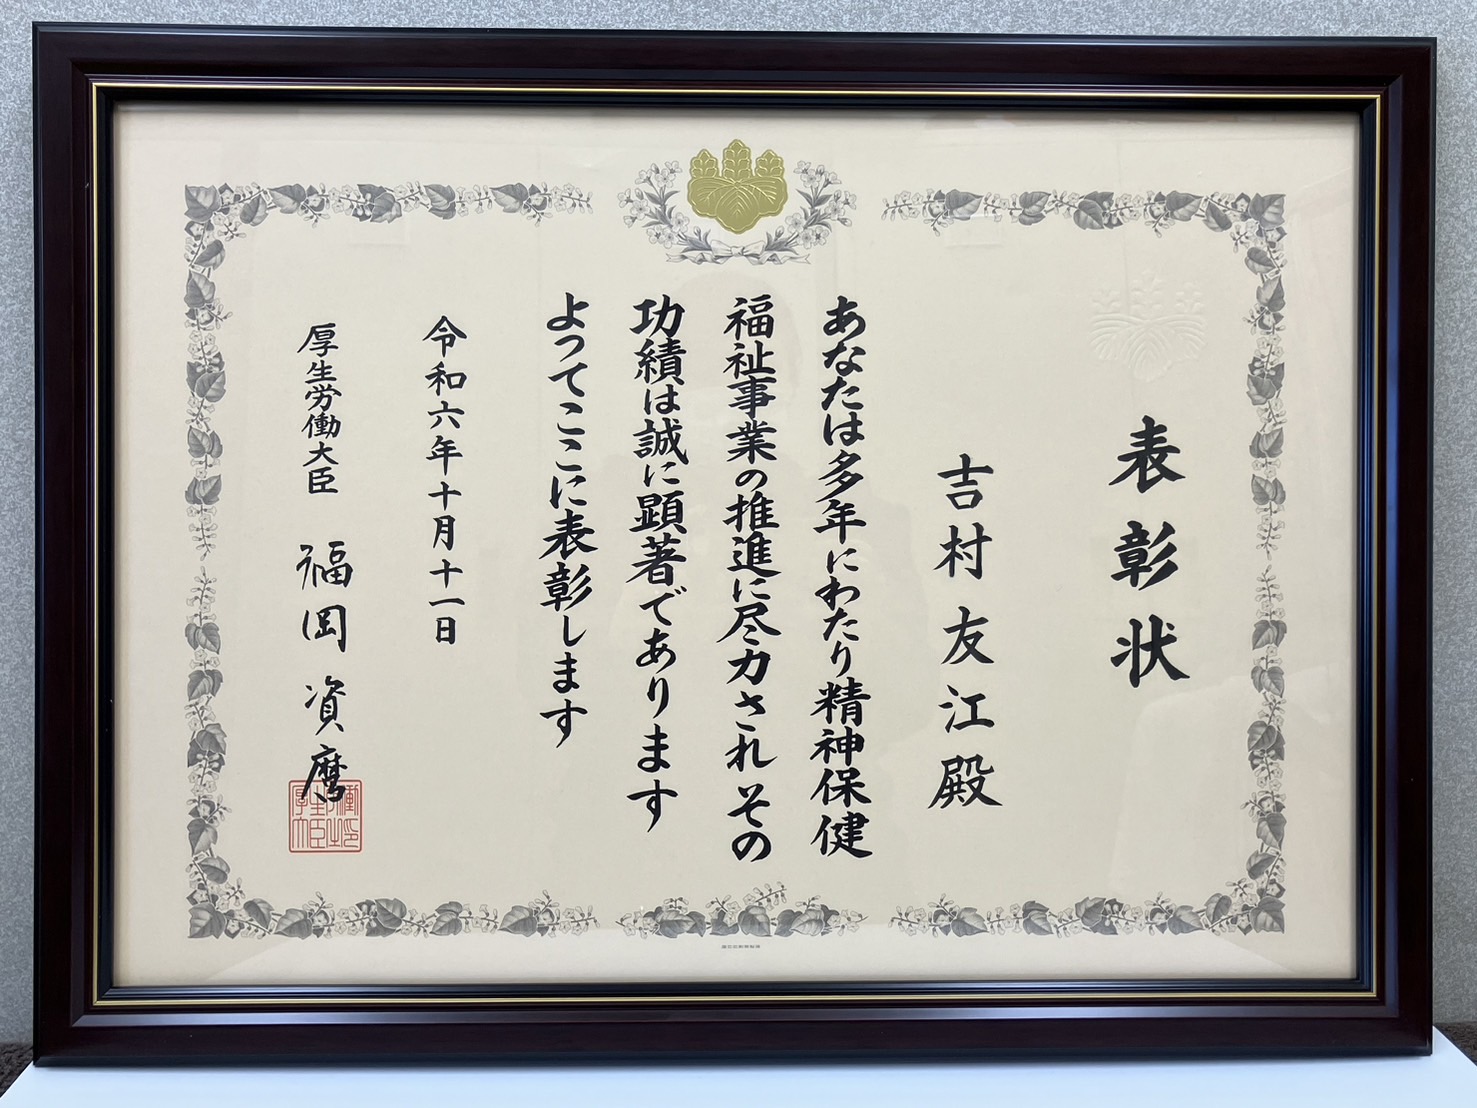 表彰状
吉村友江殿
あなたは多年にわたり精神保健
福祉事業の推進に尽力されその
功績は誠に顕著であります
よってここに表彰します
令和六年十月十一日
厚生労働大臣 福岡資麿